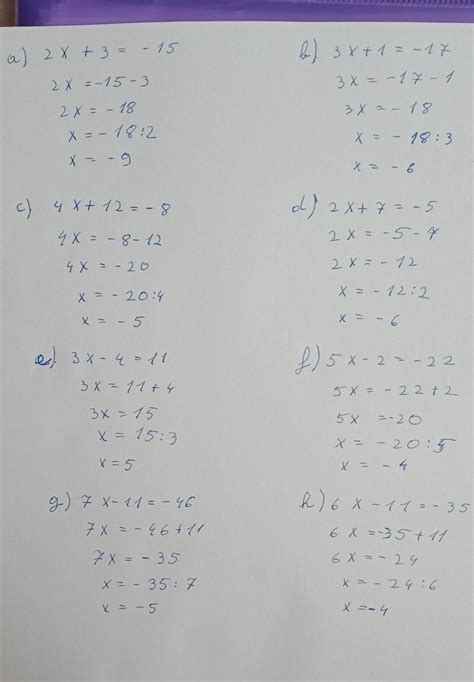 a) 2x + 3 = -15
2x = -15 - 3
2x = -18
x = -18:2
x = -9
b) 3x + 1 = -17
3x = -17 - 1
3x = -18
x = -18:3
x = -6
c) 4x + 12 = -8
4x = -8 - 12
4x = -20
x = -20:4
x = -5
d) 2x + 7 = -5
2x = -5 - 7
2x = -12
x = -12:2
x = -6
e) 3x - 4 = 11
3x = 11 + 4
3x = 15
x = 15:3
x = 5
f) 5x - 2 = -22
5x = -22 + 2
5x = -20
x = -20:5
x = -4
g) 7x - 11 = -46
7x = -46 + 11
7x = -35
x = -35:7
x = -5
h) 6x - 11 = -35
6x = -35 + 11
6x = -24
x = -24:6
x = -4